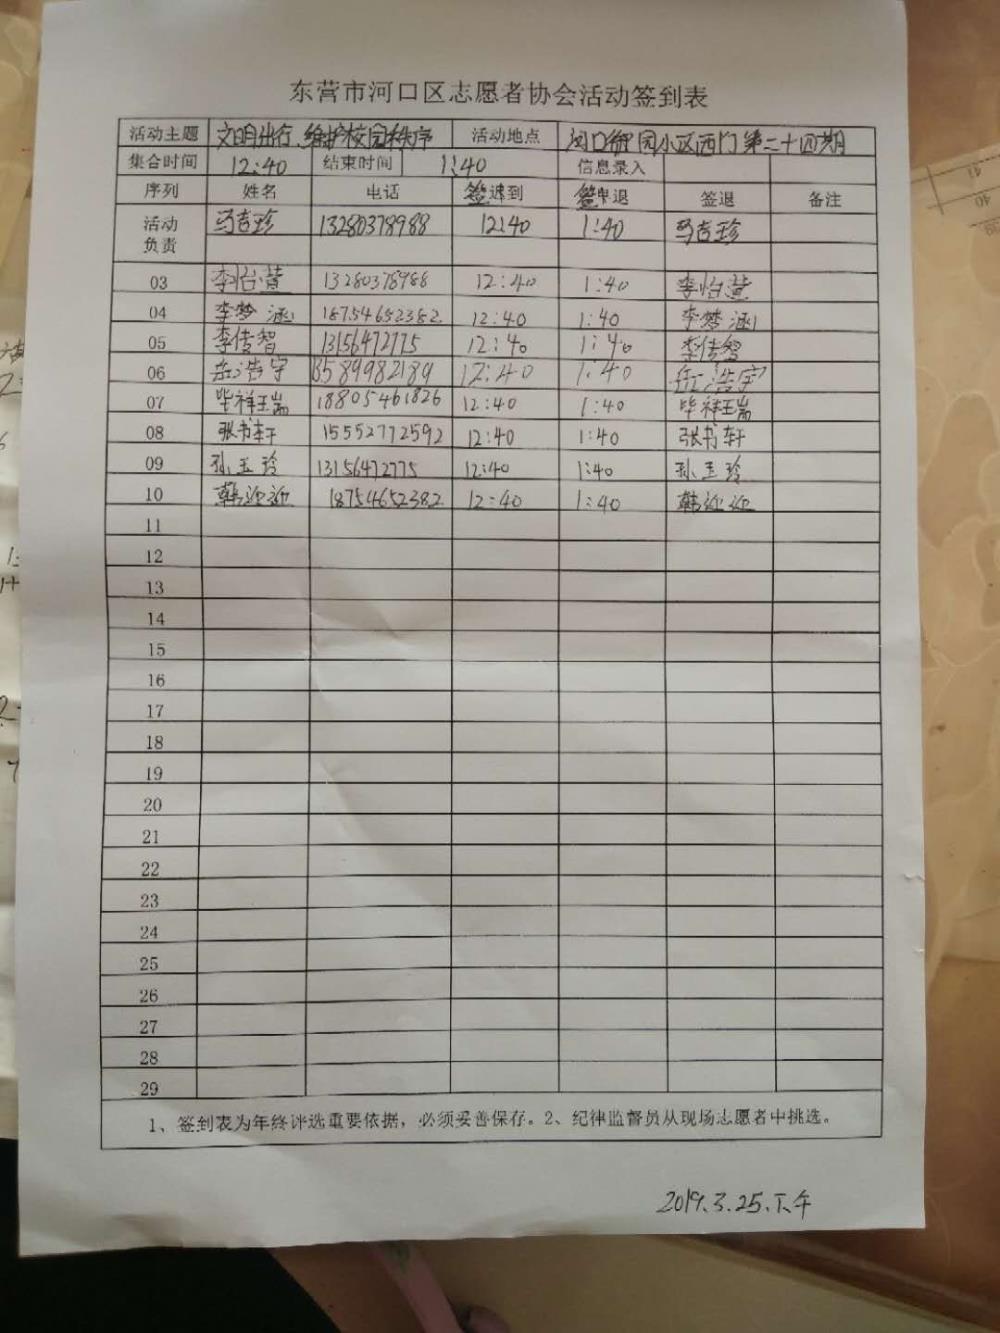 东营市河口区志愿者协会活动签到表
活动主题 文明出行、维护校园秩序 活动地点 河口街 园小区西门第二十四期
集合时间 12:40 结束时间 1:40 信息录入
序列 姓名 电话 签到 签退 签退 备注
活动负责 马吉珍 13280378988 12:40 1:40 马吉珍
03 李怡萱 13280378988 12:40 1:40 李怡萱
04 李梦涵 18754652382 12:40 1:40 李梦涵
05 李传智 13156472775 12:40 1:40 李传智
06 岳浩宇 13589982189 12:40 1:40 岳浩宇
07 毕祥瑞 18805461826 12:40 1:40 毕祥瑞
08 张书轩 15552772592 12:40 1:40 张书轩
09 孙玉玲 13156472775 12:40 1:40 孙玉玲
10 韩迎迎 18754652382 12:40 1:40 韩迎迎
11
12
13
14
15
16
17
18
19
20
21
22
23
24
25
26
27
28
29
1、签到表为年终评选重要依据，必须妥善保存。2、纪律监督员从现场志愿者中挑选。
2019.3.25.下午
41
40
39